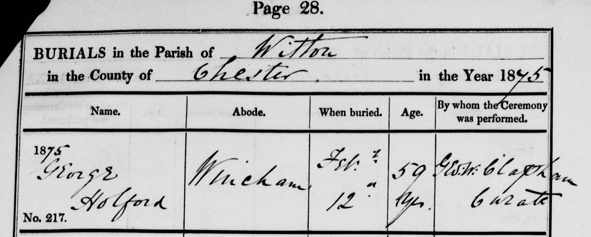 Page 28.
BURIALS in the Parish of Witton
in the County of Chester in the Year 1875
Name. Abode. When buried. Age. By whom the Ceremony was performed.
1875
George Wincham Feby 59 Geo. W. Clapham
Holford 12th yrs. Curate
No. 217.